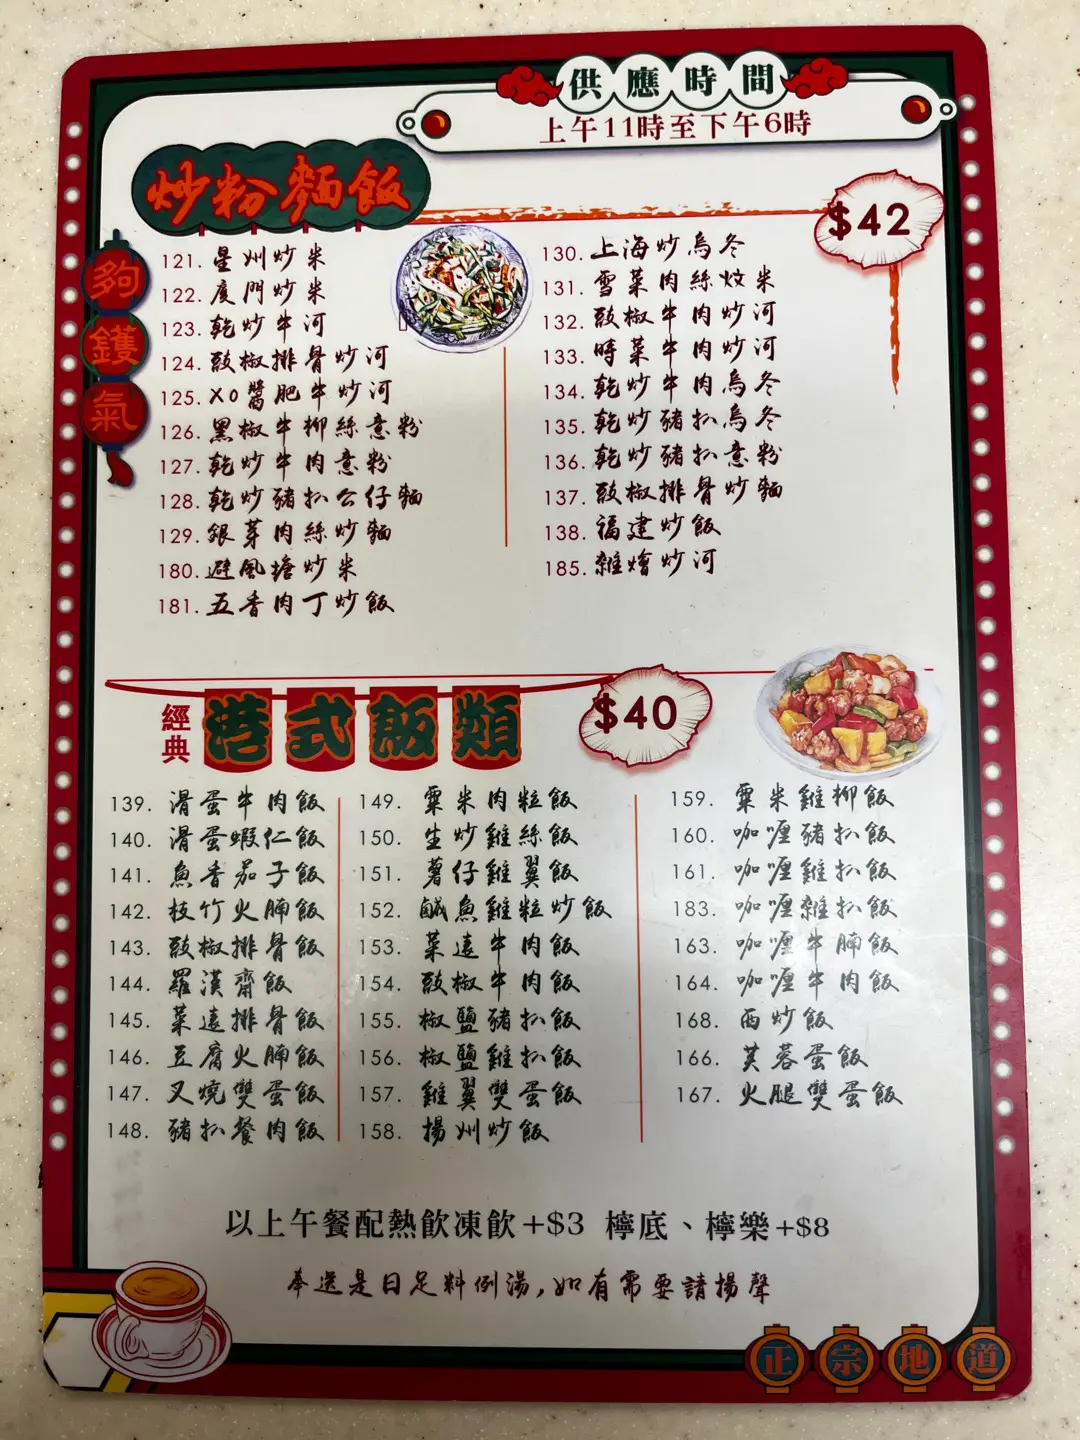 供應時間
上午11時至下午6時
炒粉麵飯
$42
夠鑊氣
121. 星州炒米
122. 廈門炒米
123. 乾炒牛河
124. 豉椒排骨炒河
125. XO醬肥牛炒河
126. 黑椒牛柳絲意粉
127. 乾炒牛肉意粉
128. 乾炒豬扒公仔麵
129. 銀芽肉絲炒麵
180. 避風塘炒米
181. 五香肉丁炒飯
130. 上海炒烏冬
131. 雪菜肉絲炆米
132. 豉椒牛肉炒河
133. 時菜牛肉炒河
134. 乾炒牛肉烏冬
135. 乾炒豬扒烏冬
136. 乾炒豬扒意粉
137. 豉椒排骨炒麵
138. 福建炒飯
185. 雜燴炒河
經典
港式飯類
$40
139. 滑蛋牛肉飯
140. 滑蛋蝦仁飯
141. 魚香茄子飯
142. 枝竹火腩飯
143. 豉椒排骨飯
144. 羅漢齋飯
145. 菜遠排骨飯
146. 豆腐火腩飯
147. 叉燒雙蛋飯
148. 豬扒餐肉飯
149. 粟米肉粒飯
150. 生炒雞絲飯
151. 薯仔雞翼飯
152. 鹹魚雞粒炒飯
153. 菜遠牛肉飯
154. 豉椒牛肉飯
155. 椒鹽豬扒飯
156. 椒鹽雞扒飯
157. 雞翼雙蛋飯
158. 揚州炒飯
159. 粟米雞柳飯
160. 咖喱豬扒飯
161. 咖喱雞扒飯
183. 咖喱雜扒飯
163. 咖喱牛腩飯
164. 咖喱牛肉飯
168. 西炒飯
166. 芙蓉蛋飯
167. 火腿雙蛋飯
以上午餐配熱飲凍飲+$3 檸底、檸樂+$8
奉送是日足料例湯,如有需要請揚聲
正宗地道